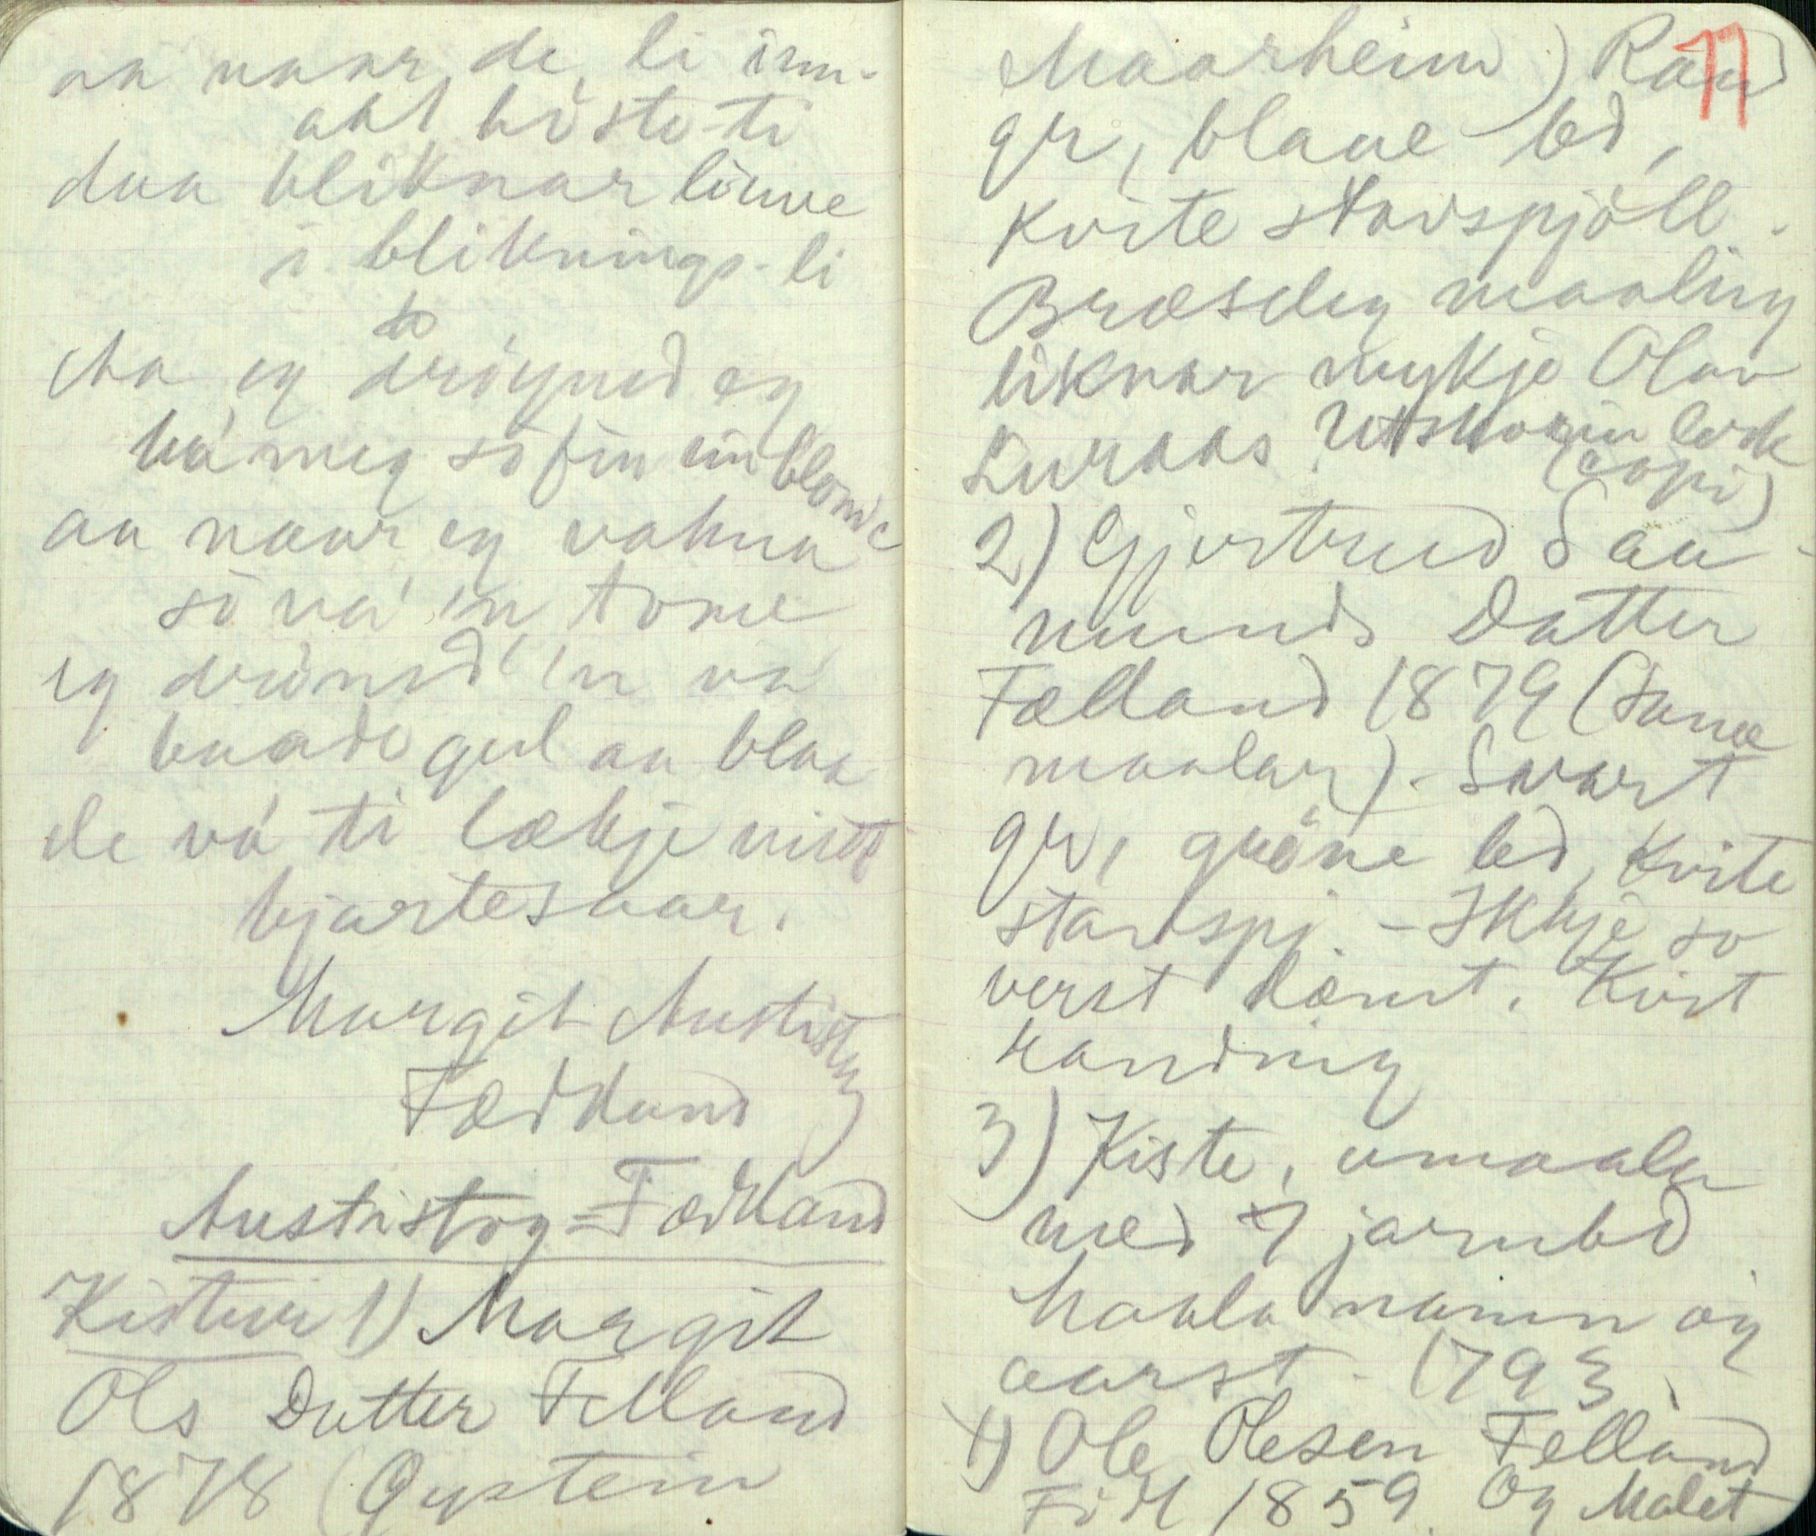 aa naar de li inn-
aat höste-ti
daa bliknar linne
i bliknings-li
Aa eg dröymd eg
há meg so fin ein blome
aa naar eg vakna
so va 'n tome
eg dröymd 'n va
baade gul aa blaa
de vá ti lækje mitt
hjartesaar.
Margit Austistog
Fædland
Austistog = Fædland
Kistur 1) Margit
Ols Datter Felland
1878 (Øystein
77
Maarheim) Raud
gr, blaae bd,
Kvite stavspjöll.
Bræsleg maaling
liknar mykje Olav
Luraas Utskorin lock
(copi)
2) Gjertrud Sau-
munds Datter
Fælland 1879 (Same
maalar). Svart
gr, gröne bd, Kvite
stavspj. - Ikkje so
verst dæmt. Kvit
randing
3) Kiste, umaala
med 7 jarnbd
Maala namn og
aarst. 1793
4) Ole Olesen Felland
Föd 1859. Og Malet